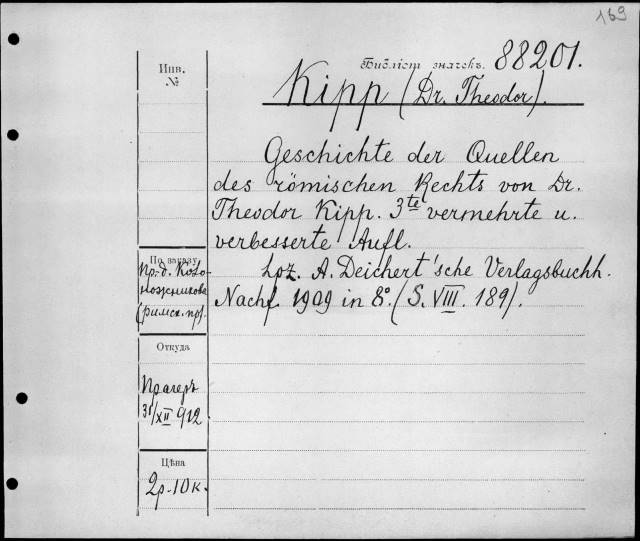 169
Библіот. значекъ. 88201.
Инв.
№
Kipp (Dr. Theodor).
Geschichte der Quellen
des römischen Rechts von Dr.
Theodor Kipp. 3te vermehrte u.
verbesserte Aufl.
Lpz. A. Deichert'sche Verlagsbuchh.
Nachf. 1909 in 8º. (S. VIII. 189).
По заказу
Пр-д. Ково-
ножникова
(римск. пр).
Откуда
Прагеръ
31/XII 912
Цѣна
2р.-10к.